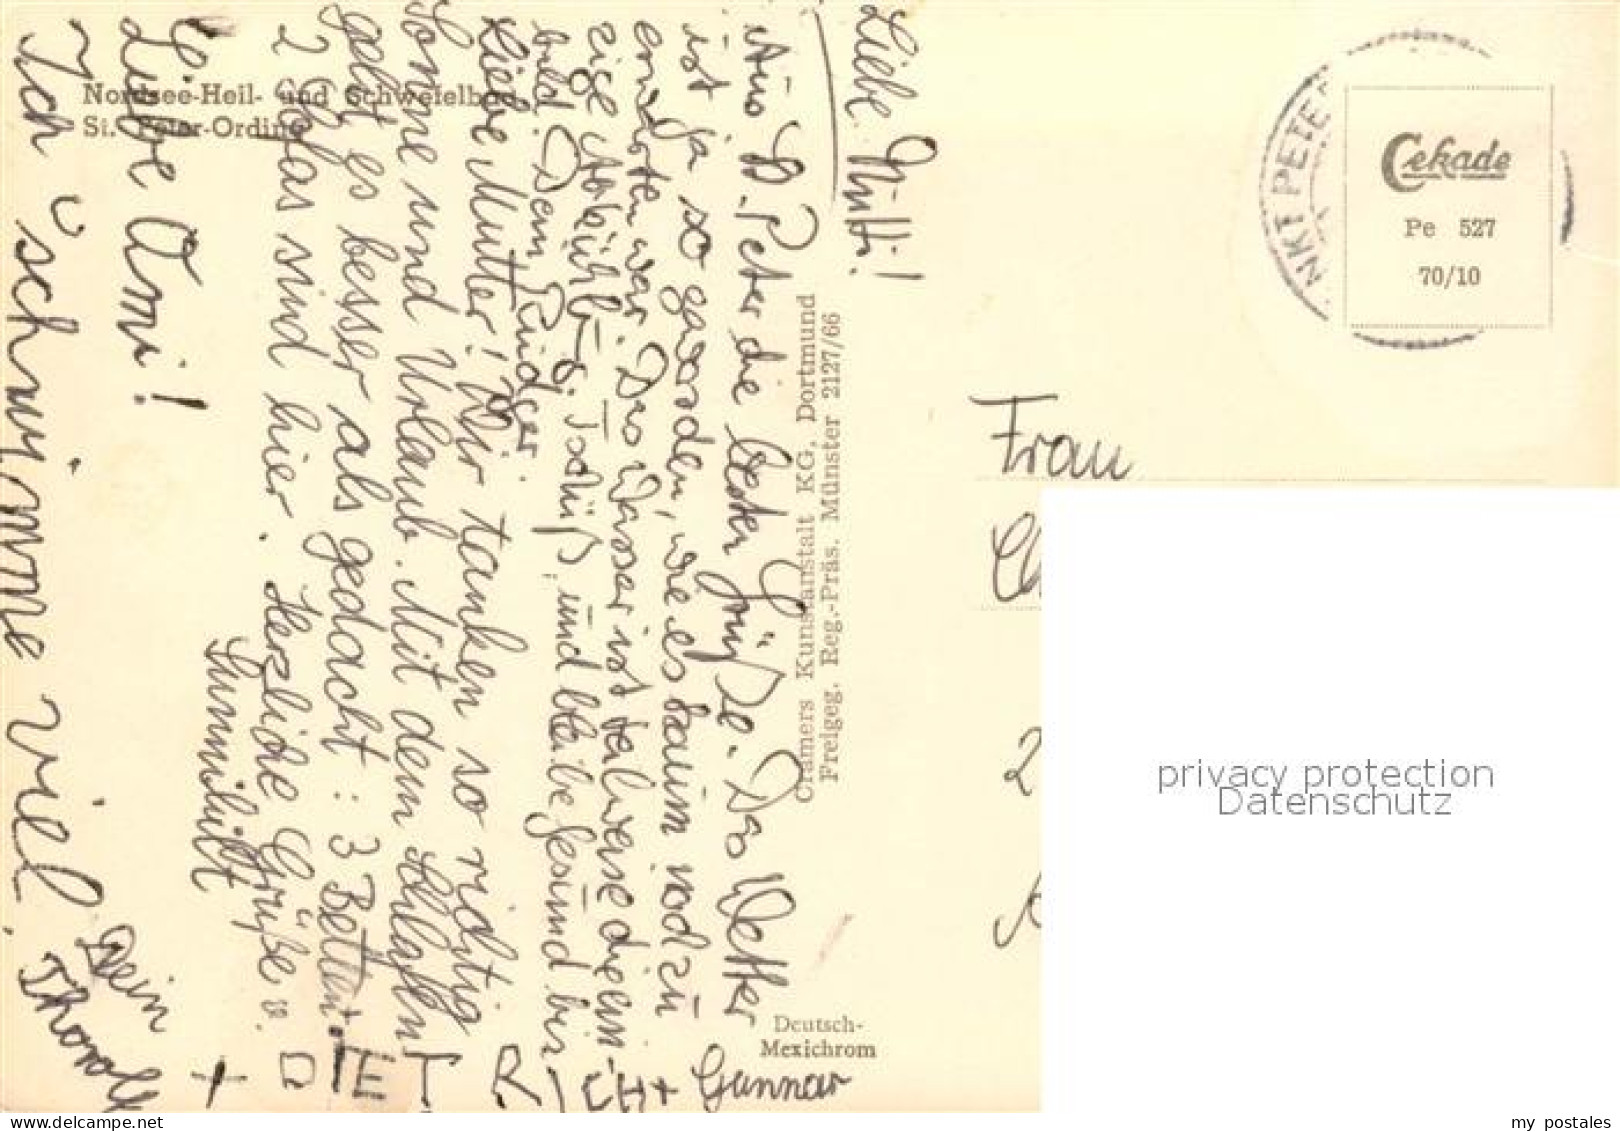 Nordsee-Heil- und Schwefelbad
St. Peter-Ording
Liebe Mutti!
Aus St. Peter die besten Grüße. Das Wetter
ist ja so geworden, wie es kaum noch zu
erwarten war. Das Wasser ist teilweise die ein-
zige Abkühl-
bild. Dem Rüdger. Tschüß, und bleibe gesund bis
Liebe Mutter! Wir tanken so richtig
Sonne und Urlaub. Mit dem Schlafen
geht es besser als gedacht: 3 Betten +
2 Sofas sind hier. Herzliche Grüße v.
Sunnihilt
Liebe Omi!
Ich schwimme viel.
Dein
Thoralf
+ DIETRICH + Gunnar
Cramers Kunstanstalt KG, Dortmund
Freigeg. Reg.-Präs. Münster 2127/66
Deutsch-
Mexichrom
NKT PETE
Cekade
Pe 527
70/10
Frau
2
privacy protection
Datenschutz
my postales